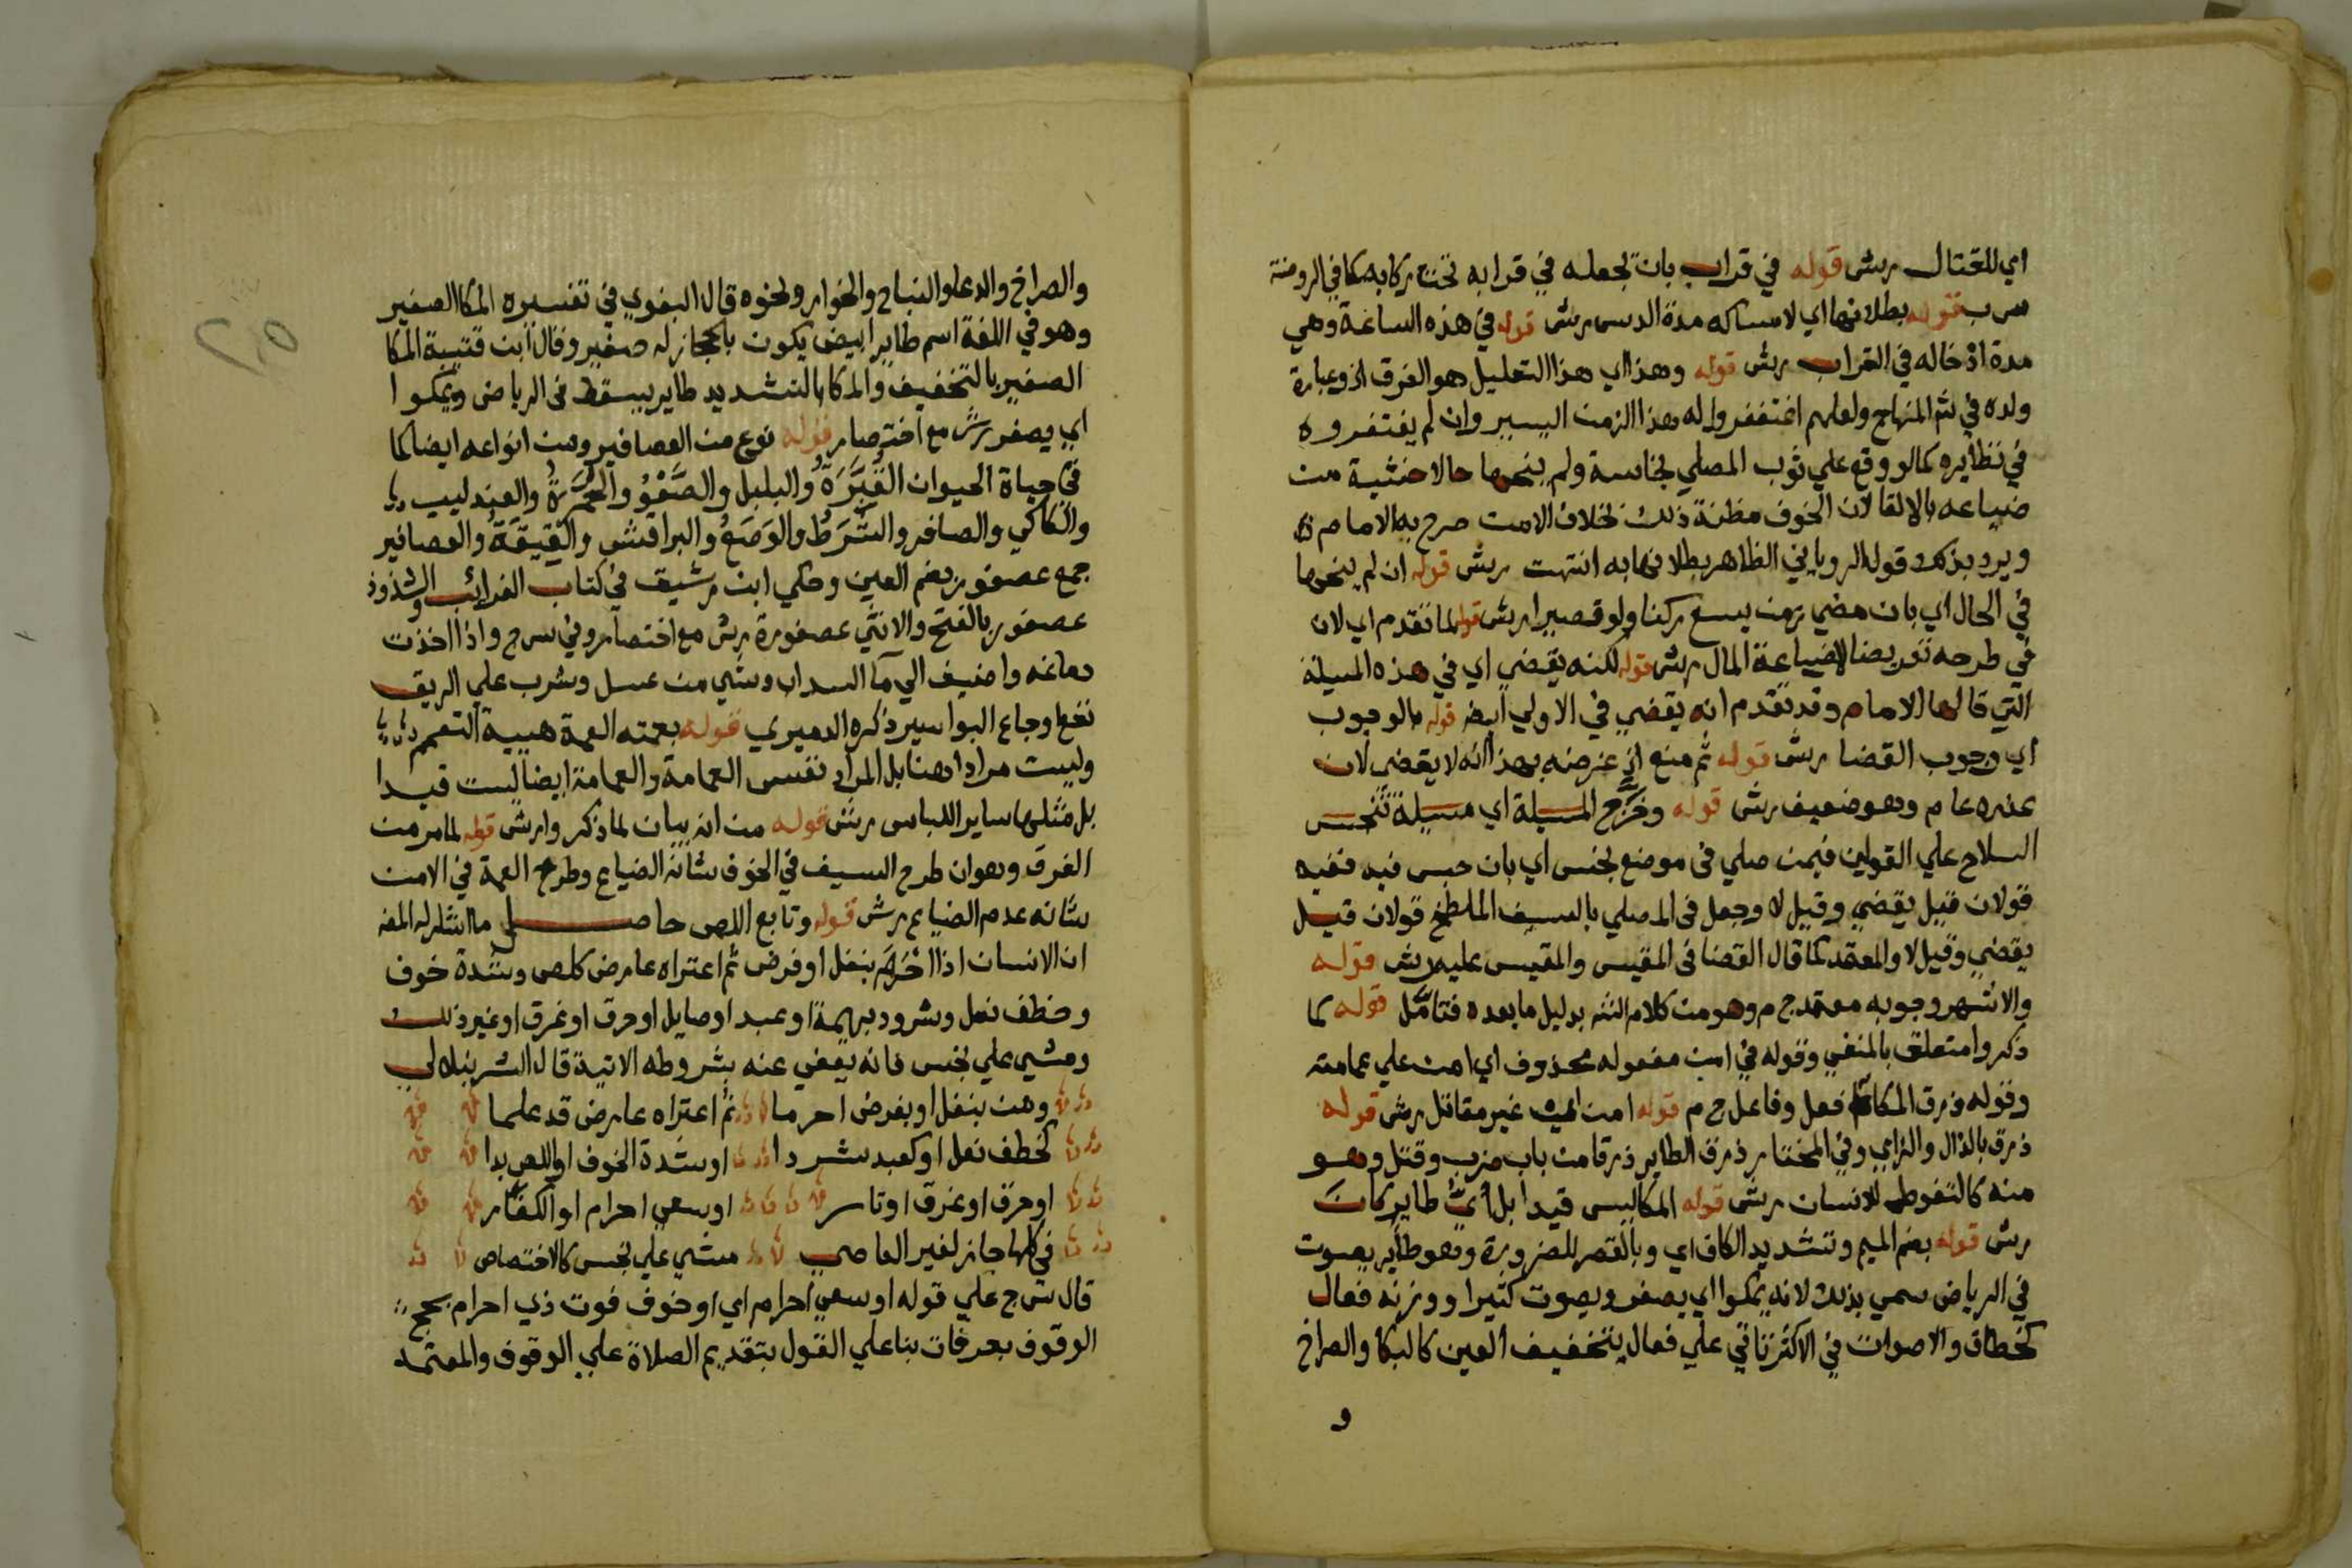 اي للقتال رش قوله في قراب بان تجعله في قرابه تحت ركابه كما في الروضة
س ب قوله بطلانها اي لامساكه مدة الدس رش قوله في هذه الساعة وهي
مدة ادخاله في القراب رش قوله وهذا اي هذا التعليل هو الفرق اذ وعبارة
ولده في شم المنهاج ولعلهم اغتفروا له هذا الزمن اليسير وان لم يغتفروه
في نظايره كما لو وقع علي ثوب المصلي نجاسة ولم ينحها حالا خشية من
ضياعه بالالقا لان الخوف مظنة ذلك بخلاف الامن صرح به الامام
ويرد بذلك قول الروياني الظاهر بطلانها به انتهت رش قوله ان لم ينحها
في الحال اي بان مضي زمن يسع ركنا ولو قصيرا رش قوله لما تقدم اي لان
في طرحه تعريضا لاضياعة المال رش قوله لكنه يقضي اي في هذه المسيلة
التي قالها الامام وقد تقدم انه يقضي في الاولي ايضا قوله بالوجوب
اي وجوب القضا رش قوله ثم منع اذ غرضه بهذا انه لا يقضي لان
عذره عام وهو ضعيف رش قوله وخرج المسيلة اي مسيلة تنجس
السلاح علي القولين فيمن صلي في موضع نجس اي بان حبس فيه ففيه
قولان قيل يقضي وقيل لا وجعل في المصلي بالسيف الملطخ قولان قيل
يقضي وقيل لا والمعتمد كما قال القضا في المقيس والمقيس عليه رش قوله
والاشهر وجوبه معتمد ج م وهو من كلام الشه بدليل ما بعده فتامل قوله كما
ذكروا متعلق بالمنفي وقوله في امن مفعوله محذوف اي امن علي عمامته
وقوله ذرق المكا فعل وفاعل ج م قوله امن اي غير مقاتل رش قوله
ذرق بالذال والزاي وفي المختار ذرق الطاير ذرقا من باب ضرب وقتل وهو
منه كالتغوط للانسان رش قوله المكا ليس قيدا بل اي طاير كان
رش قوله بضم الميم وتشديد الكاف اي وبالقصر للضرورة وهو طاير يصوت
في الرياض سمي بذلك لانه يمكوا اي يصفر ويصوت كثيرا ووزنه فعال
كخطاف والاصوات في الاكثر تاتي علي فعال بتخفيف العين كالبكا والصراخ
و
والصراخ والدعا والنباح والخوار ونحوه قال البغوي في تفسيره المكا الصفير
وهو في اللغة اسم طاير ابيض يكون بالحجاز له صفير وقال ابن قتيبة المكا
الصفير بالتخفيف والمكا بالتشديد طاير يسقط في الرياض ويمكوا
اي يصفر رش مع اختصار قوله نوع من العصافير ومن انواعه ايضا كما
في حياة الحيوان القُبَّرَة والبلبل والصَّعْوُ والحُمَّرَةُ والعندليب
والمكاكي والصافر والشَّرَطُ والوَصَعُ والبراقش والقيقَةُ والعصافير
جمع عصفور بضم العين وحكي ابن رشيق في كتاب الغرائب والشذوذ
عصفور بالفتح والانثي عصفورة رش مع اختصار وفي س ج واذا اخذت
دماغه واضيف الي ما السداب وشي من عسل وشرب علي الريق
نفع اوجاع البواسير ذكره الدميري قوله بعمته العمة هيية التعمم
وليست مرادا هنا بل المراد نفس العمامة والعمامة ايضا ليست قيدا
بل مثلها ساير اللباس رش قوله من انه بيان لما ذكروا رش قوله لما مر من
الفرق وهو ان طرح السيف في الخوف شانه الضياع وطرح العمة في الامن
شانه عدم الضياع رش قوله وتابع اللص حاصل ما اشار له المص
ان الانسان اذا احرم بنفل او فرض ثم اعتراه عارض كلص وشدة خوف
وخطف نعل وشرود بهيمة او عبد او صايل او حرق او غرق او غير ذلك
ومشي علي نجس فانه يعفي عنه بشروطه الاتية قال الشرنبلالي
ومن بنفل او بفرض احرما ثم اعتراه عارض قد علما
كخطف نعل او كعبد شردا او شدة الخوف او اللص بدا
او حرق او غرق او تاسر او سعي احرام او الكفار
في كلها جاز لغير العاصي مشي علي نجس كالاختصاص
قال ش ج علي قوله او سعي احرام اي او خوف فوت ذي احرام بحج
الوقوف بعرفات بنا علي القول بتقديم الصلاة علي الوقوف والمعتمد